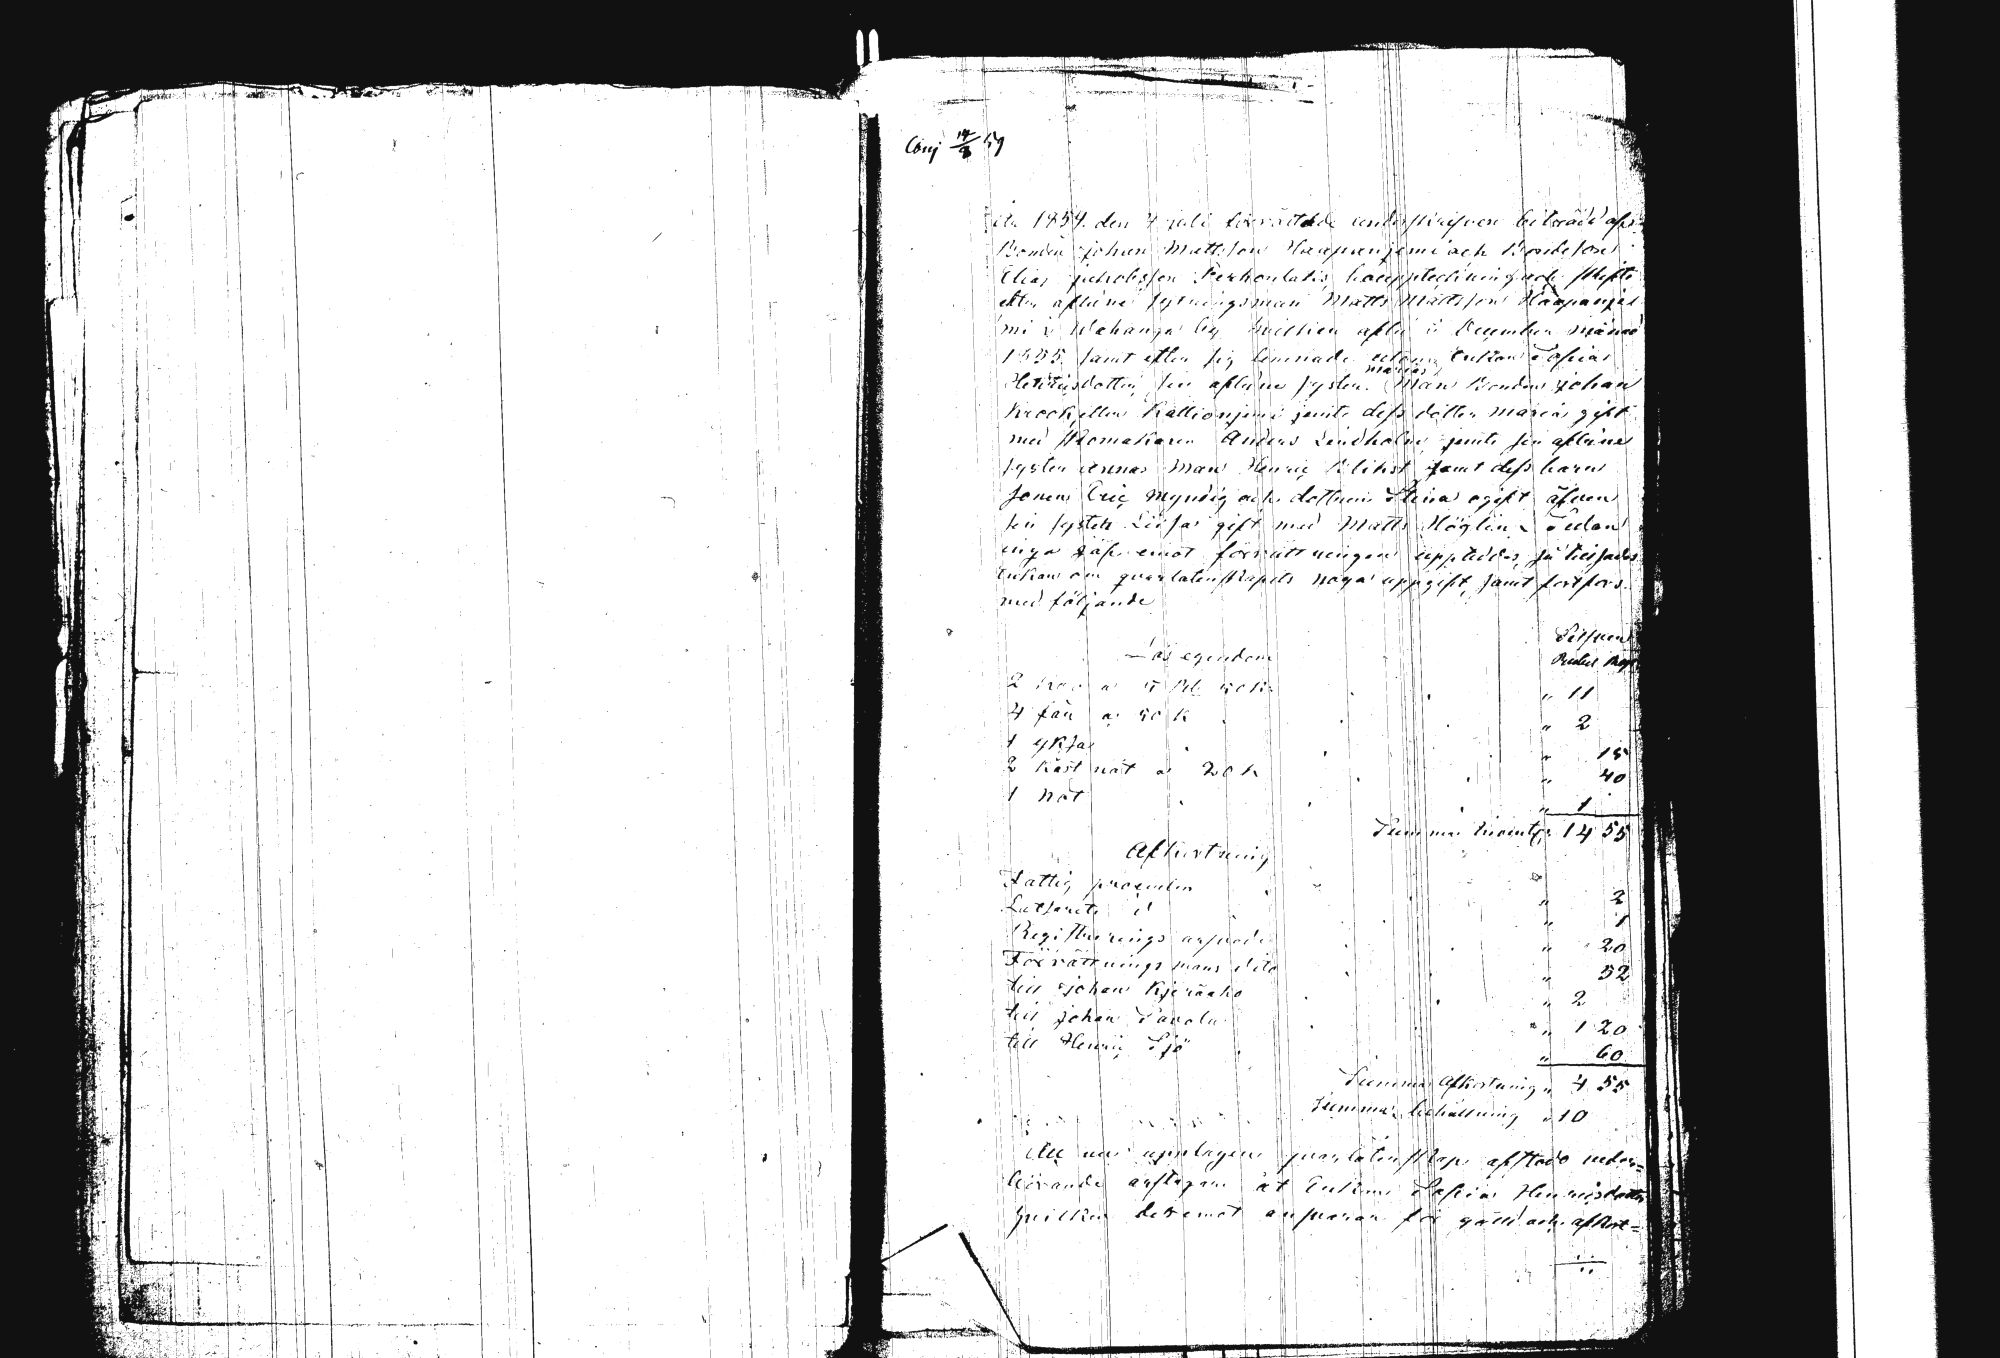 Conj 14/8 59
År 1859 den 4 juli förrättade undertskrifven biträdd af
Bonden Johan Mattsson Haapaniemi och Bondeson
Elias Jakobsson Perkonlaks bouppteckning och skifte
efter aflidne sytningsman Matts Mattsson Haapanie
mi i Wahanga by hvilken afled i December månad
1855 samt efter sig lemnade utom Enkan Sofia
Henricsdotter, sin aflidne syster Marias man Bonden Johan
Krock eller Kallioniemi jemte dess dotter Maria gift
med skomakaren Anders Lindholm jemte sin aflidne
syster Annas man Henric Klihst samt dess barn
sonen Eric myndig och dottren Stina ogift äfven
sin syster Liisa gift med Matts Höglin. Sedan
inga jäf emot förrättningen uppteddes, så tillsades
Enkan om qvarlåtenskapets noga uppgift, samt fortfors
med följande
Silfver
Lös egendom Rubel Kop
2 kor a 5 Rb 50 K " 11
4 får a 50 K " 2
1 yxa " 15
2 kast nät a 20 K " 40
1 not " 1
Summa Inventr " 14 55
Afkortning
Fattig procenten " 2
Lutfarets d " 1
Registrerings arfvode " 20
Förrättnings mans dito " 52
till Johan Kjeråaho " 2
till Johan Tavola " 1 20
till Henric Sjö " 60
Summa Afkortning " 4 55
Summa behållning " 10
All nu upptagen qvarlåtenskap afstodo veder=
börande arftagare åt Enkan Sofia Henricsdotter
hvilken deremot ansvarar för gäld och afkort=